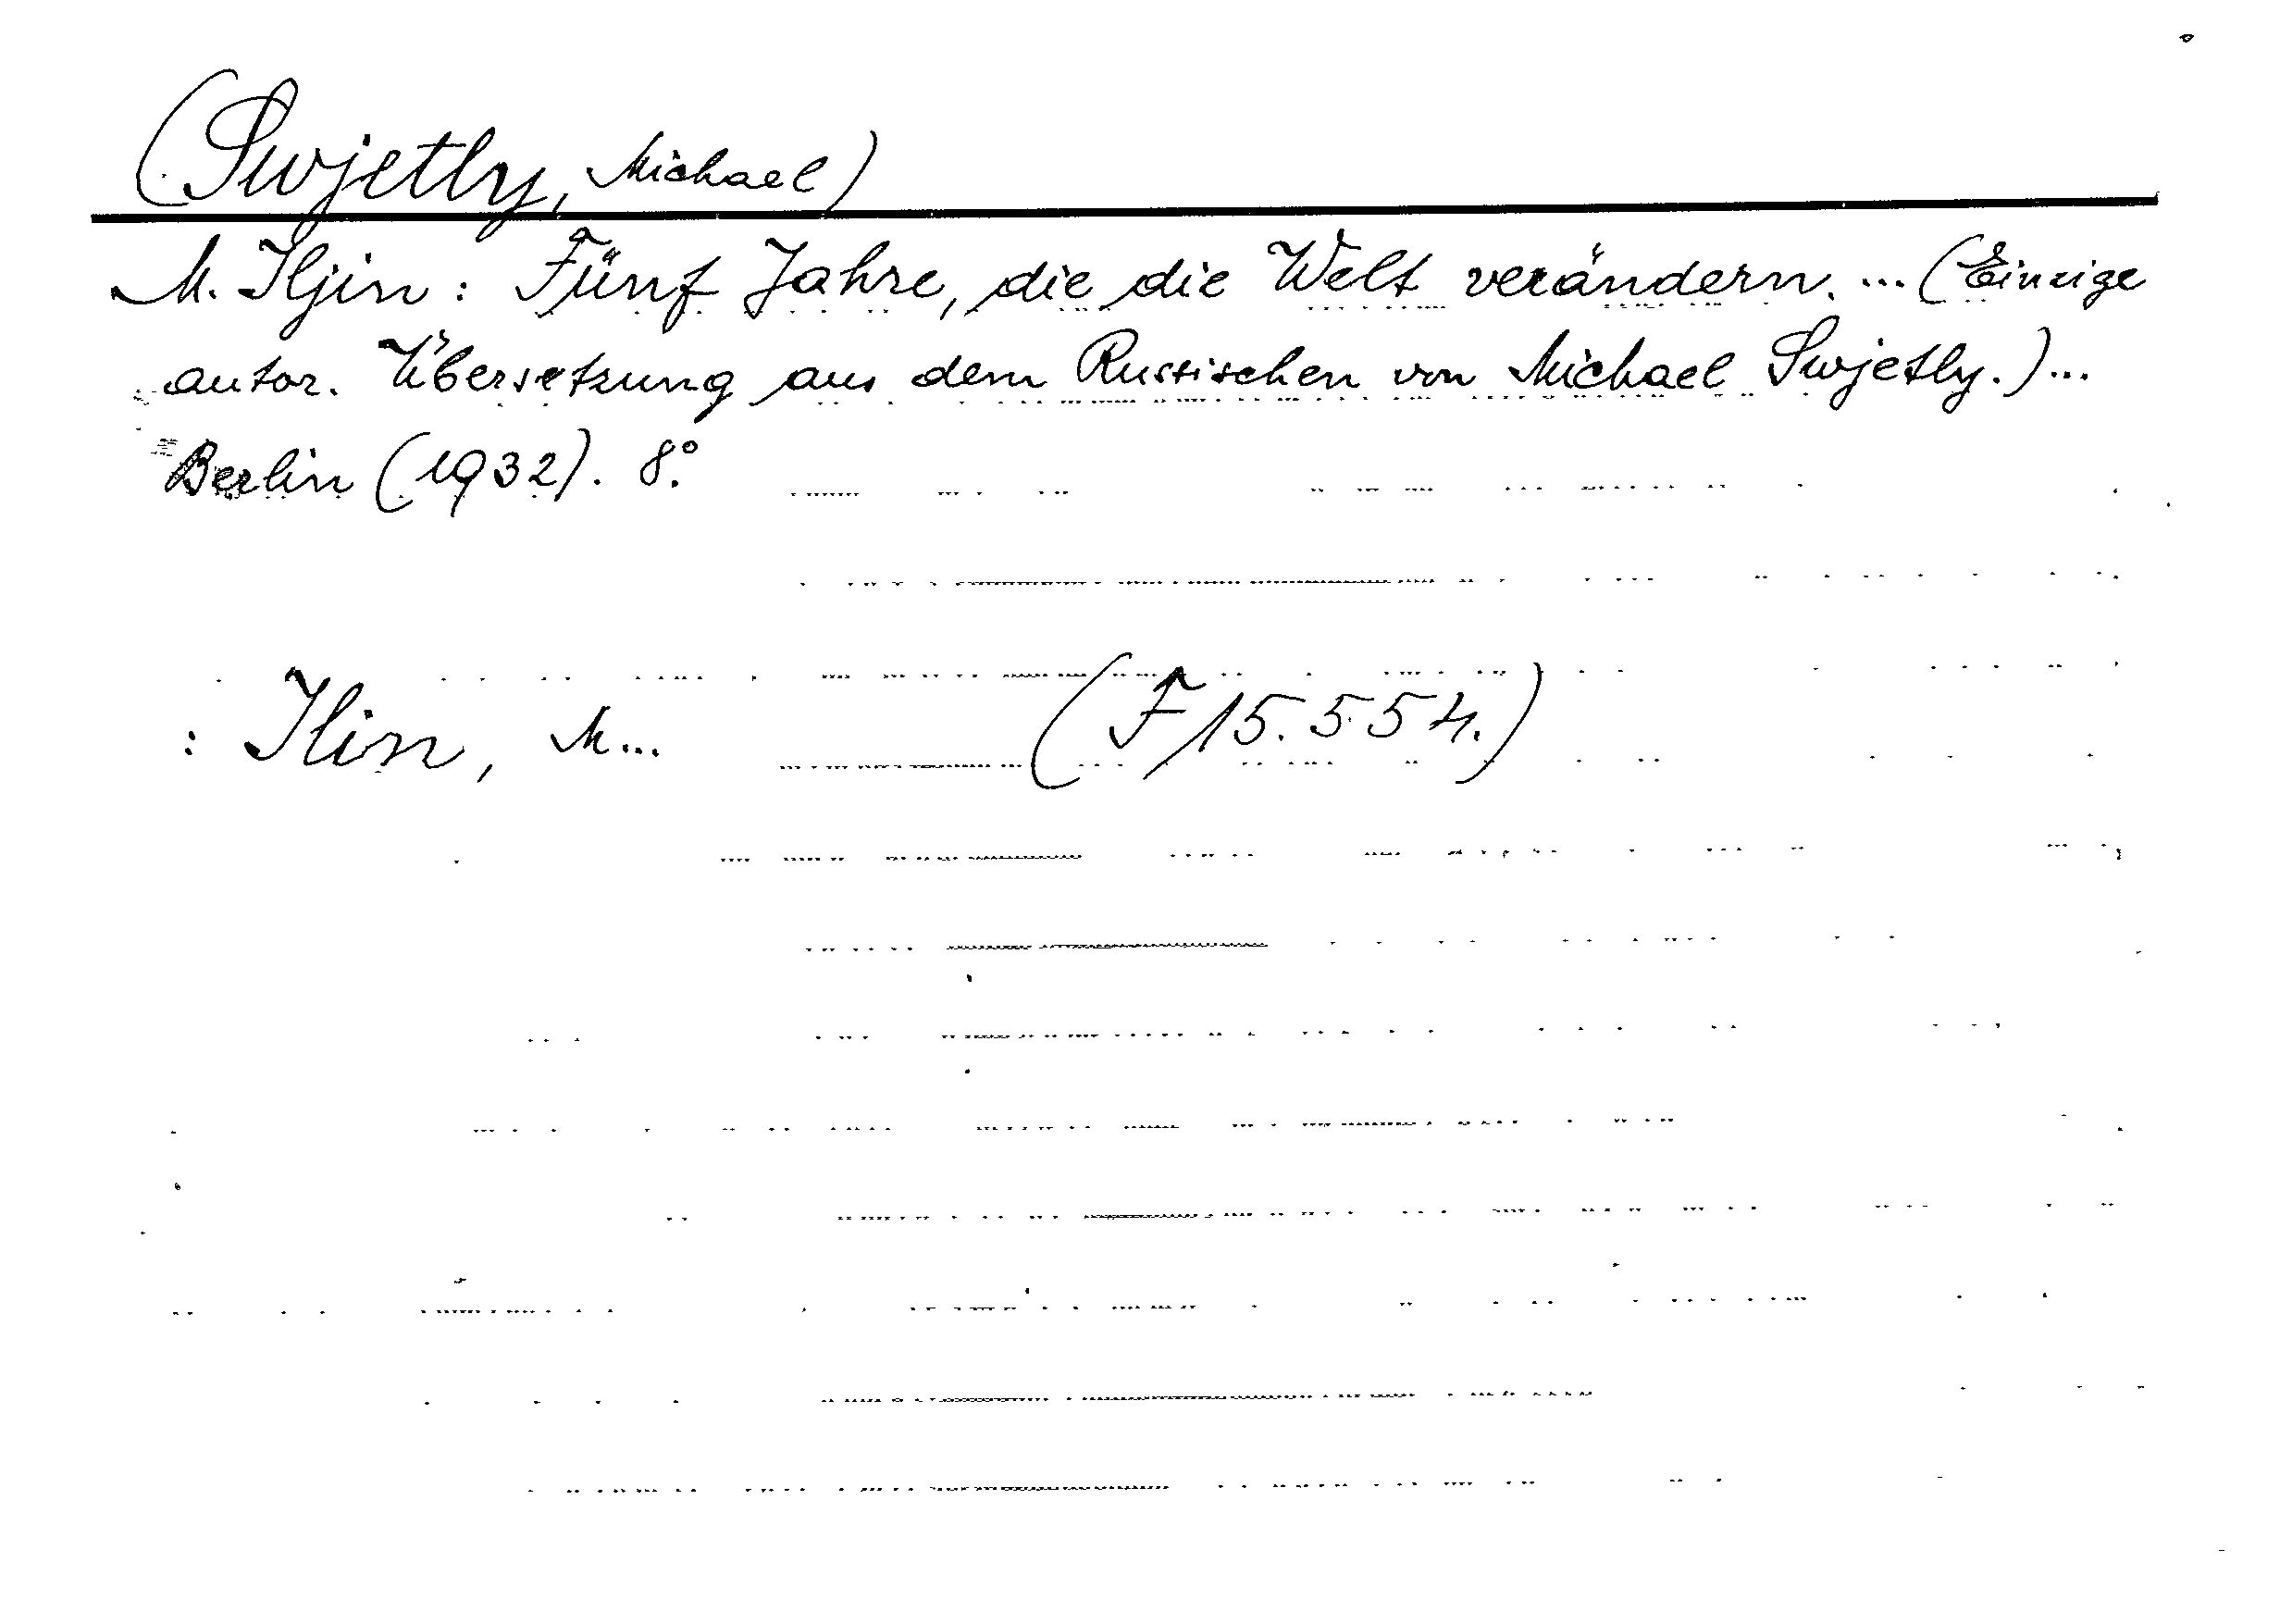 (Swjetly, Michael)
M. Iljin: Fünf Jahre, die die Welt verändern. ... (Einzige
autor. Übersetzung aus dem Russischen von Michael Swjetly.) ...
Berlin (1932). 8°.
: Ilin, M... (F 15.554.)